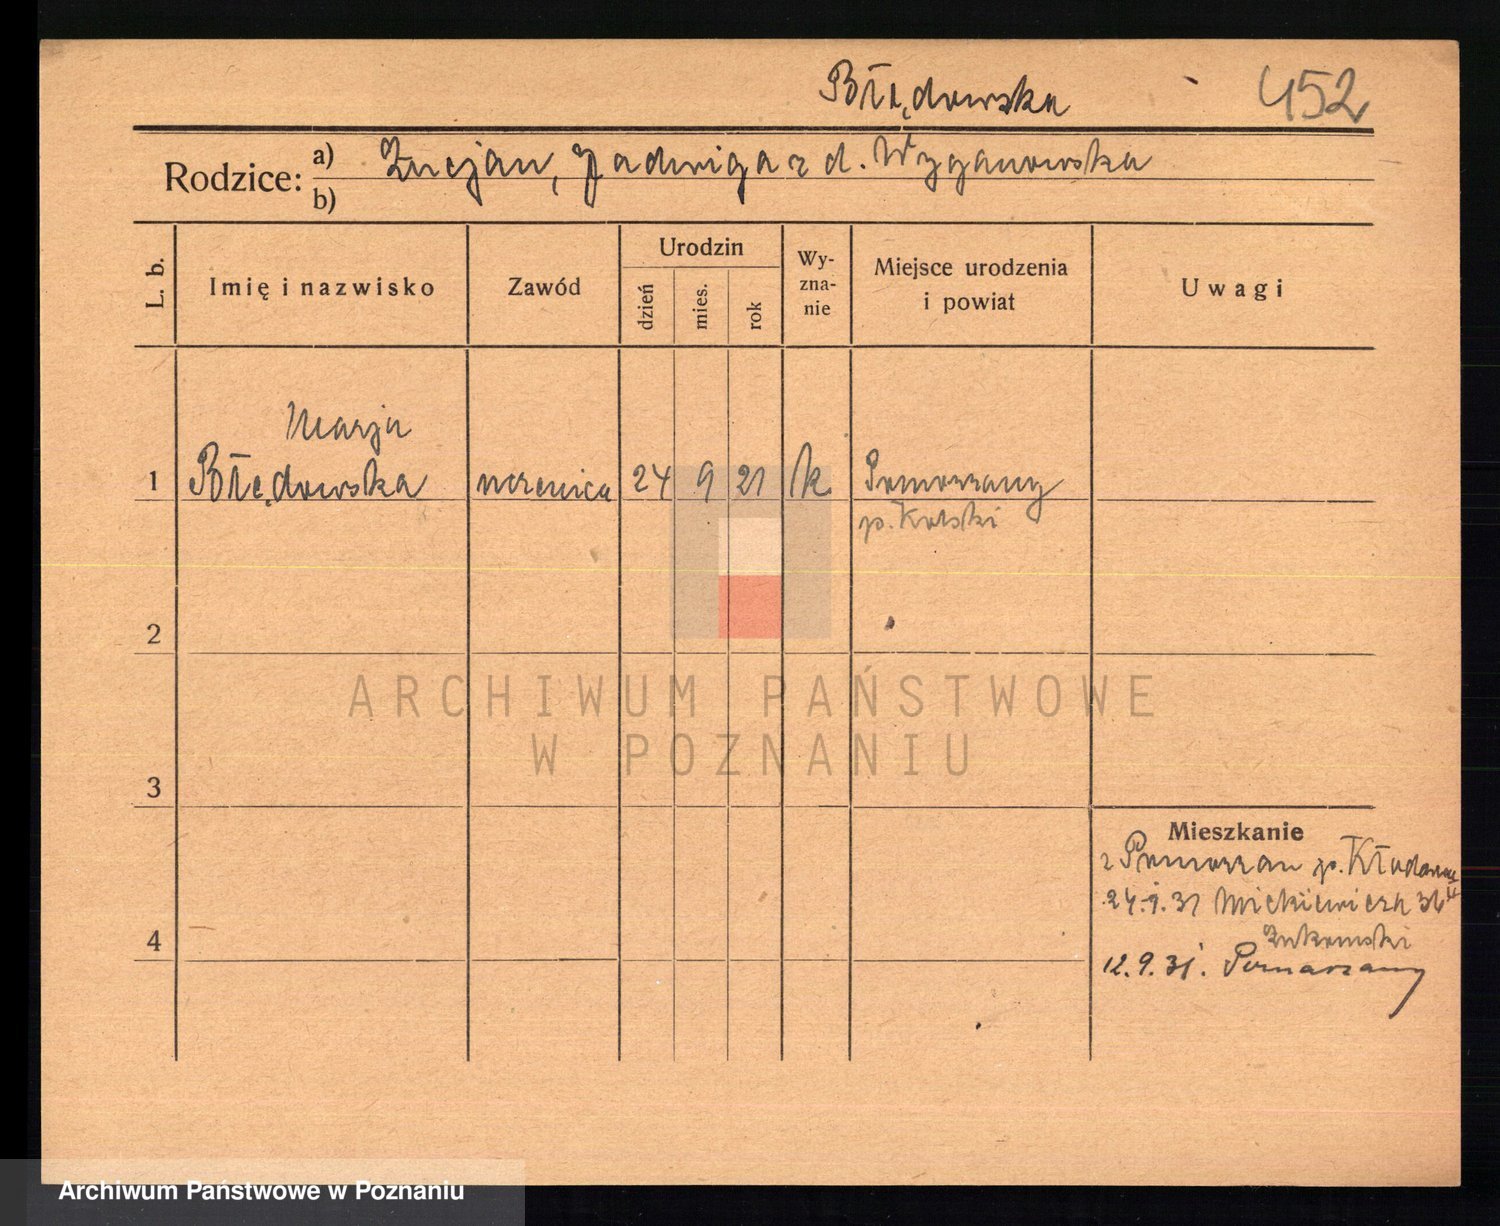 Błędowska 452
Rodzice: a) Lucjan, Jadwiga z d. Wyganowska
b)
L. b. Imię i nazwisko Zawód Urodzin dzień mies. rok Wy-zna-nie Miejsce urodzenia i powiat Uwagi
Marja
1 Błędowska uczenica 24 9 21 k Pomarzany
p. Kolski
2
ARCHIWUM PAŃSTWOWE
W POZNANIU
3
Mieszkanie
z Pomarzan p. Kłodawa
24.9.31 Mickiewicza 36
4
Żukowski
12.9.31. Pomarzany
Archiwum Państwowe w Poznaniu